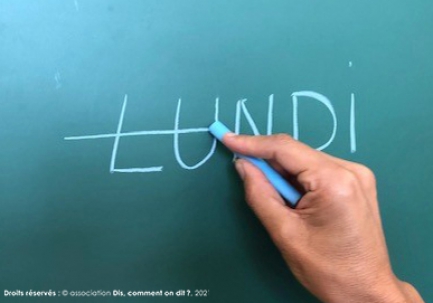 LUNDI
Droits réservés : © association Dis, comment on dit ?, 202